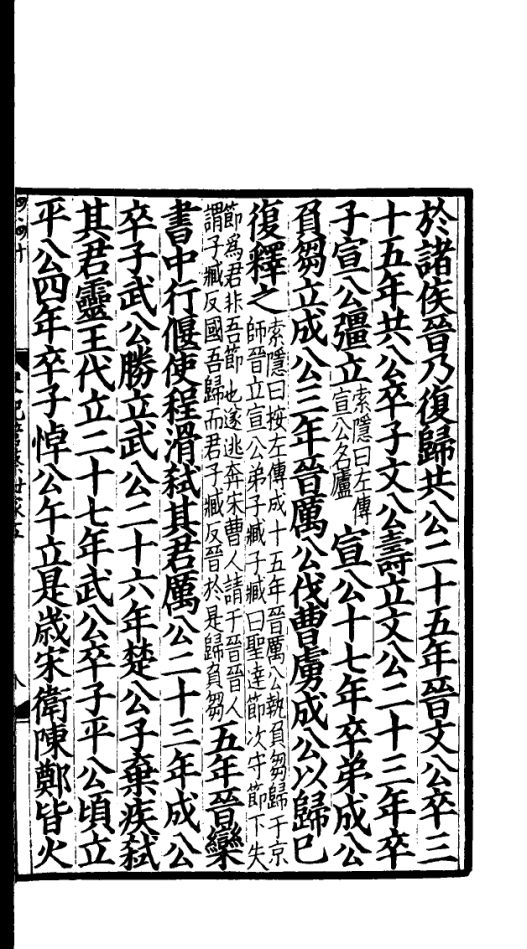 於諸侯晉乃復歸共公二十五年晉文公卒三
十五年共公卒子文公壽立文公二十三年卒
子宣公彊立索隱曰左傳宣公名廬宣公十七年卒弟成公
負芻立成公三年晉厲公伐曹虜成公以歸已
復釋之索隱曰按左傳成十五年晉厲公執負芻歸于京師晉立宣公弟子臧子臧曰聖達節次守節下失
節爲君非吾節也遂逃奔宋曹人請于晉晉人謂子臧反國吾歸而君子臧反晉於是歸負芻五年晉欒
書中行偃使程滑弒其君厲公二十三年成公
卒子武公勝立武公二十六年楚公子棄疾弒
其君靈王代立二十七年武公卒子平公頃立
平公四年卒子悼公午立是歲宋衛陳鄭皆火